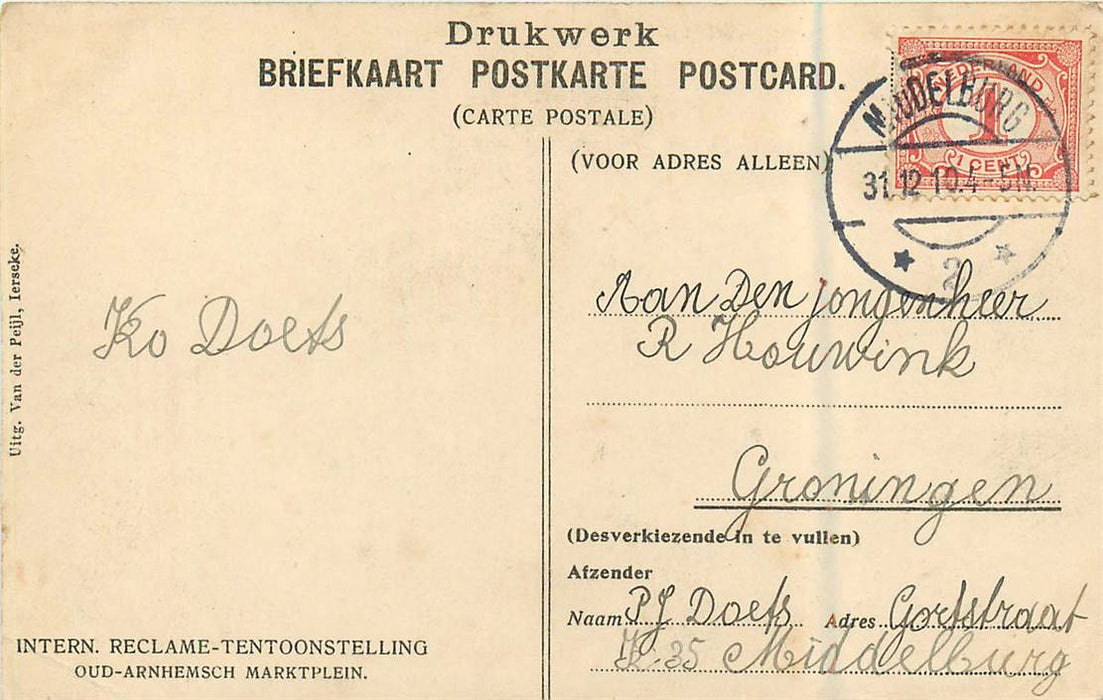 Drukwerk
BRIEFKAART POSTKARTE POSTCARD.
(CARTE POSTALE)
(VOOR ADRES ALLEEN)
NEDERLAND
1
1 CENT
MIDDELBURG
31.12 10.4-5N.
2
Uitg. Van der Peijl, Ierseke.
Ko Doets
Aan Den jongenheer
R Houwink
Groningen
(Desverkiezende in te vullen)
Afzender
Naam PJ Doets Adres Gortstraat
K 35 Middelburg
INTERN. RECLAME-TENTOONSTELLING
OUD-ARNHEMSCH MARKTPLEIN.